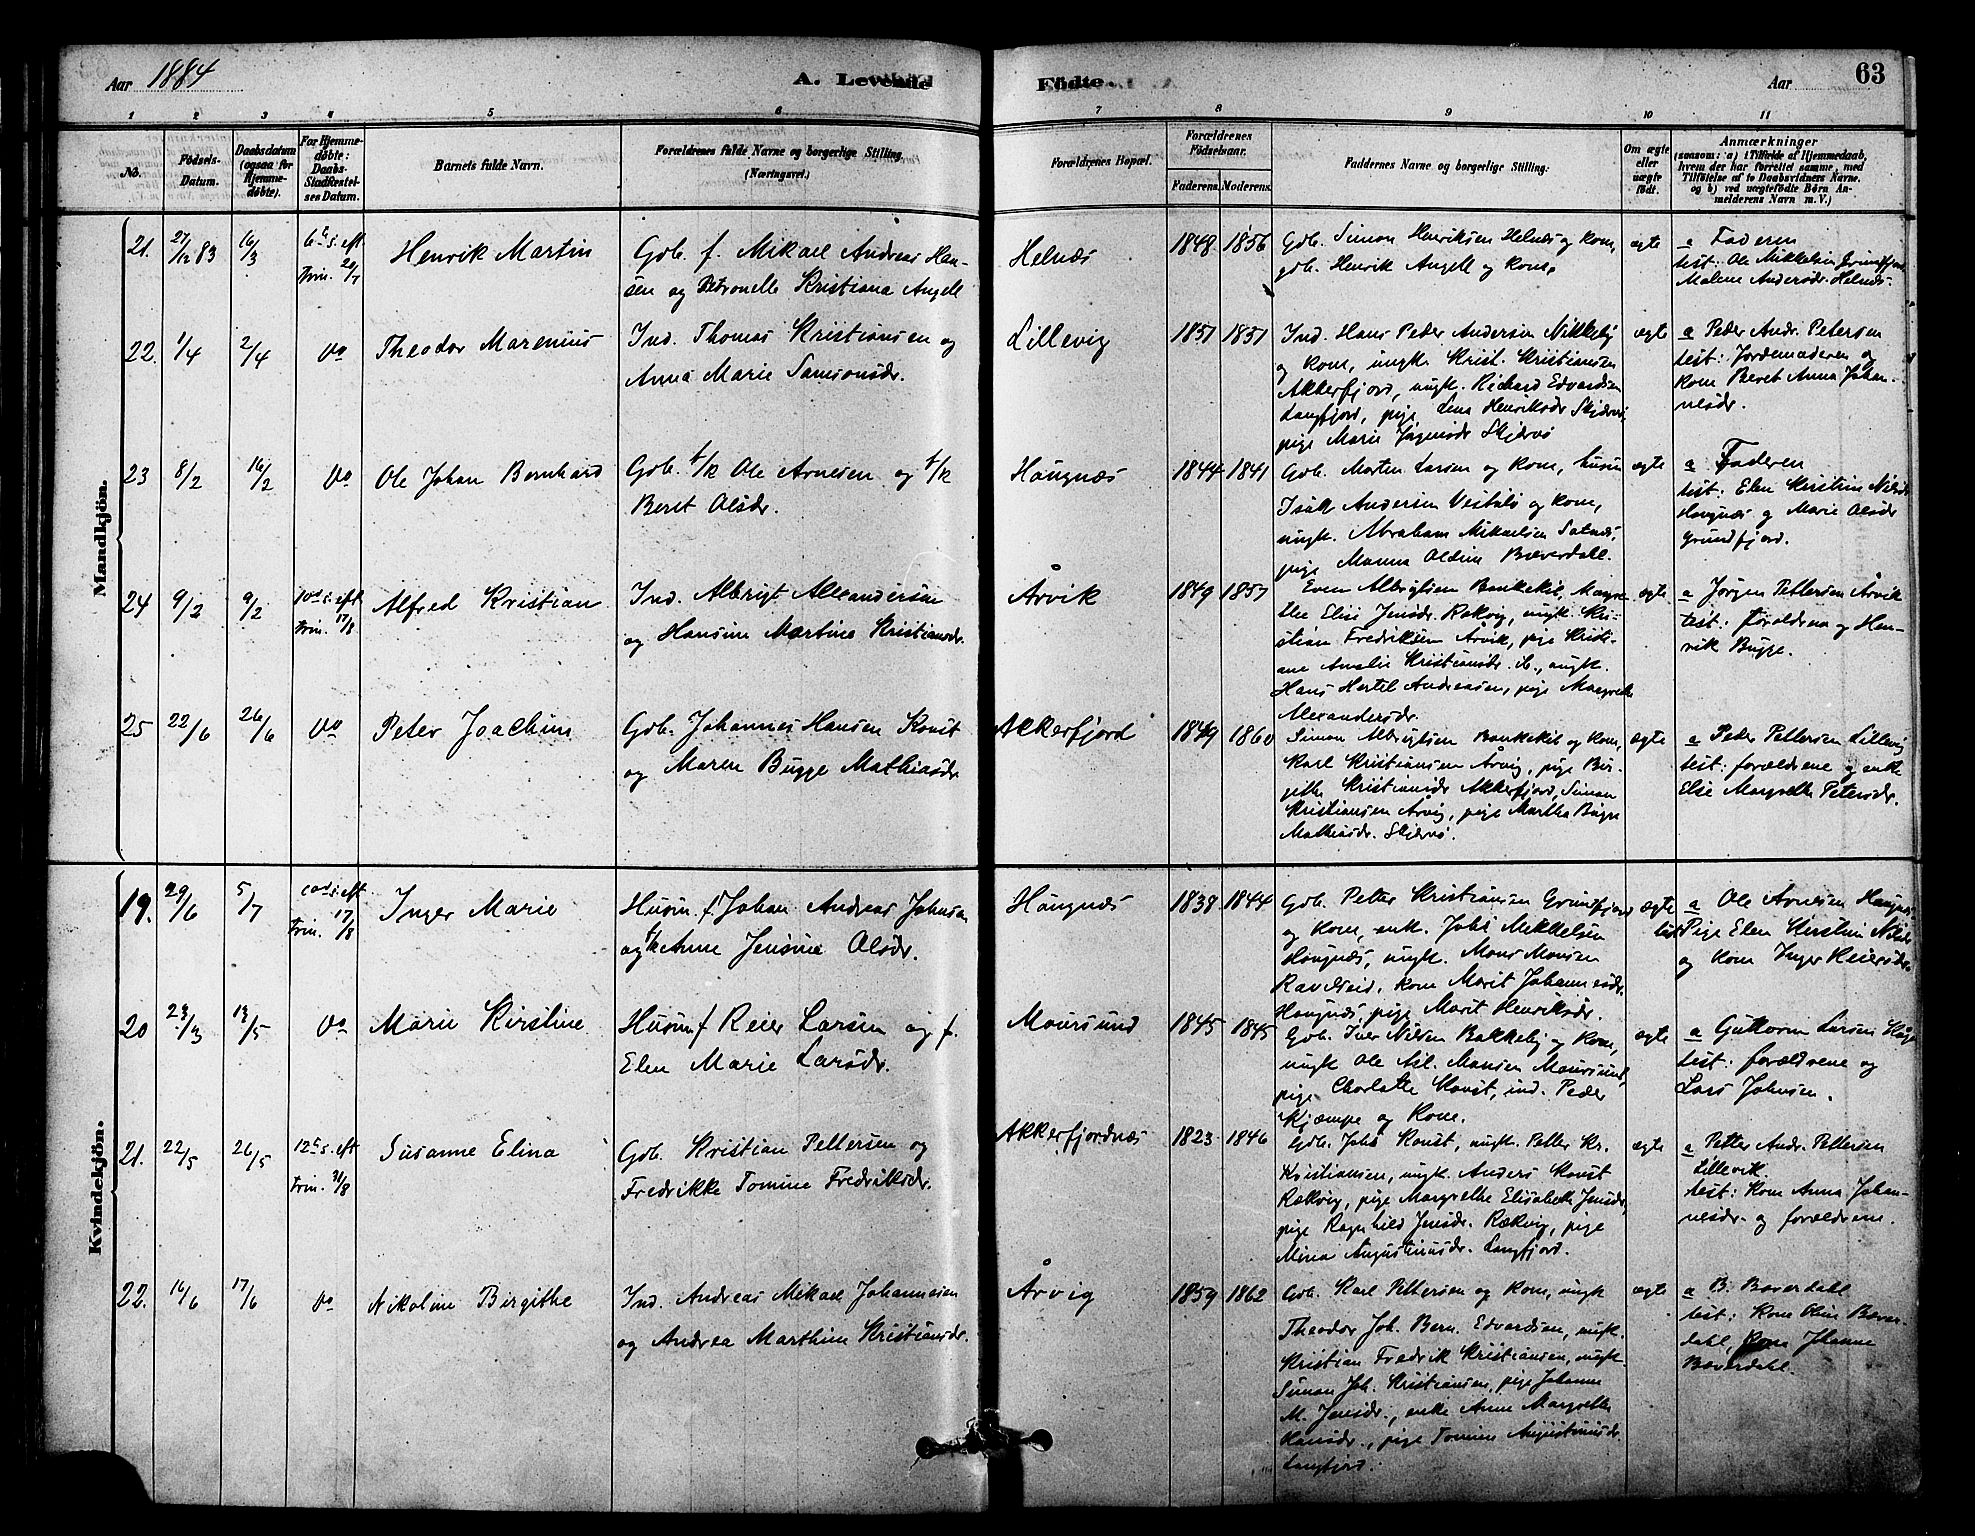 Aar 1884
A. Levende Födte.
Aar
63
1 2 3 4 5 6 7 8 9 10 11
No.
Födsels-Datum.
Daabsdatum (ogsaa for Hjemme-döbte).
For Hjemme-döbte: Daabs-Stadfæstel-ses Datum.
Barnets fulde Navn.
Forældrenes fulde Navne og borgerlige Stilling. (Næringsvei.)
Forældrenes Bopæl.
Forældrenes Födselsaar.
Faderens. Moderens.
Faddernes Navne og borgerlige Stilling.
Om ægte eller uægte födt.
Anmærkninger
(saasom: a) i Tilfælde af Hjemmedaab, hvem der har forrettet samme, med Tilföielse af to Daabsvidners Navne, og b) ved uægtefödte Börn An-melderens Navn m. V.)
Mandkjön.
21. 27/12 83 16/3 6te s. eft Trin. 20/7
Henrik Martin
Gdb. f. Mikael Andreas Han-
sen og Petronelle Kristiana Angell
Helnæs
1848. 1856
Gdb. Simon Henriksen Helnæs og kone,
gdb. Henrik Angell og kone.
ægte
a Faderen
test: Ole Mikkelsen Grundfjord
Malene Andersdr. Helnæs.
22. 1/4 2/4 do
Theodor Marenius
Ind. Thomas Kristiansen og
Anna Marie Samsonsdr.
Lillevig
1851 1851
Ind. Hans Peder Andersen Nikkeby
og kone, ungk. Krist. Kristiansen
Akkerfjord, ungk. Richard Edvardsen
Langfjord, pige Lena Henriksdr Skjærvø
pige Marie Skjærvø
ægte
a Peder Andr. Petersen
test: Jordemoderen og
kone Beret Anna Johan-
nesdr.
23 8/2 16/2 do
Ole Johan Bernhard
Gdb. t/k Ole Arnesen og t/k
Beret Olsdr.
Haugnæs
1844 1841
Gdb. Morten Larsen og kone, husm
Isak Andersen og kone,
ungk. Abraham Mikaelsen
pige Manna Oldine Bæverdall.
ægte
a Faderen
test: Elen Kirstine Nilsdr
Haugnæs og Marie Olsdr
Grundfjord.
24 9/2 9/2 10de s. eft Trin. 17/8
Alfred Kristian
Ind. Albrigt Alexandersen
og Hansine Martine Kristiansdr.
Årvik
1849 1857
Even Albrigtsen Bankekil, Margre-
the Elise Jensdr. Rækvig, ungk. Kri-
stian Fredriksen Årvik, pige Kristi-
ane Amalie Kristiansdr. ib., ungk.
Hans Hertel Andreasen, pige Margrethe
Alexandersdr.
ægte
a Jørgen Pettersen Årvik
test: forældrene og Hen-
rik Bugge.
25 22/6 26/6 do
Peter Joachim
Gdb. Johannes Hansen Konst
og Maren Bugge Mathiasdr.
Akkerfjord
1849 1860
Simon Albrigtsen Bankekil og kone,
Karl Kristiansen Årvig, pige Bir-
gitte Kristiansdr Akkerfjord, Simon
Kristiansen Årvig, pige Martha Bugge
Mathiasdr. Skjervø.
ægte
a Peder Pettersen Lillevig
test: forældrene og enke
Else Margrethe Petersdr.
Kvindekjön.
19. 29/6 5/7 10de s. eft Trin. 17/8
Inger Marie
Husm. f. Johan Andreas Johnsen
og t/k Anne Jensine Olsdr.
Haugnæs
1838 1844
Gdb. Petter Kristiansen Grundfjord
og kone, enk. Johs Mikkelsen
Haugnæs, ungk. Mons Monsen
Ravelseid, kone Marit Johannesdr.
Haugnæs, pige Marit Henriksdr.
ægte
a Ole Arnesen Haugnæs.
test Pige Elen Kirstine Nilsdr
og kone Inger Reiersdr.
20 23/3 13/5 do
Marie Kirstine
Husm f Reier Larsen og f.
Elen Marie Larsdr.
Maursund
1845 1845
Gdb. Iver Nilsen Bakkeby og kone,
ungk Ole Monsen Maursund,
pige Charlotte Konst, ind. Peder
Kjæmpe og kone.
ægte
a Guttorm Larsen
test: forældrene og
Lars Johnsen.
21. 22/5 26/5 12te s. eft Trin. 31/8
Susanne Elina
Gdb. Kristian Pettersen og
Fredrikke Tomine Fredriksdr.
Akkerfjordnæs
1823 1846
Gdb. Johs Konst, ungk. Petter Kr.
Kristiansen, ungk. Anders Konst
Rækvig, pige Margrethe Elisabeth Jensdr,
pige Ragnhild Jensdr. Rækvig, pige
Mina Augustinusdr. Langfjord.
ægte
a Petter Andr. Pettersen
Lillevik
test: kone Anna Johan-
nesdr. og forældrene.
22. 16/6 17/6 do
Nikoline Birgithe
Ind. Andreas Mikael Johannesen
og Andrea Marthine Kristiansdr.
Årvig
1859 1862
Gdb. Karl Pettersen og kone, ungk
Theodor Joh. Bern. Edvardsen, ungk.
Kristian Fredrik Kristiansen, ungk.
Simon Joh. Kristiansen, pige Johanne
M. Jensdr., enke Anne Margrethe
Hansdr., pige Tomine Augustinusdr.
Langfjord.
ægte
a B. Boverdahl
test: Kone Bover-
dahl, kone Johanne
Boverdahl.